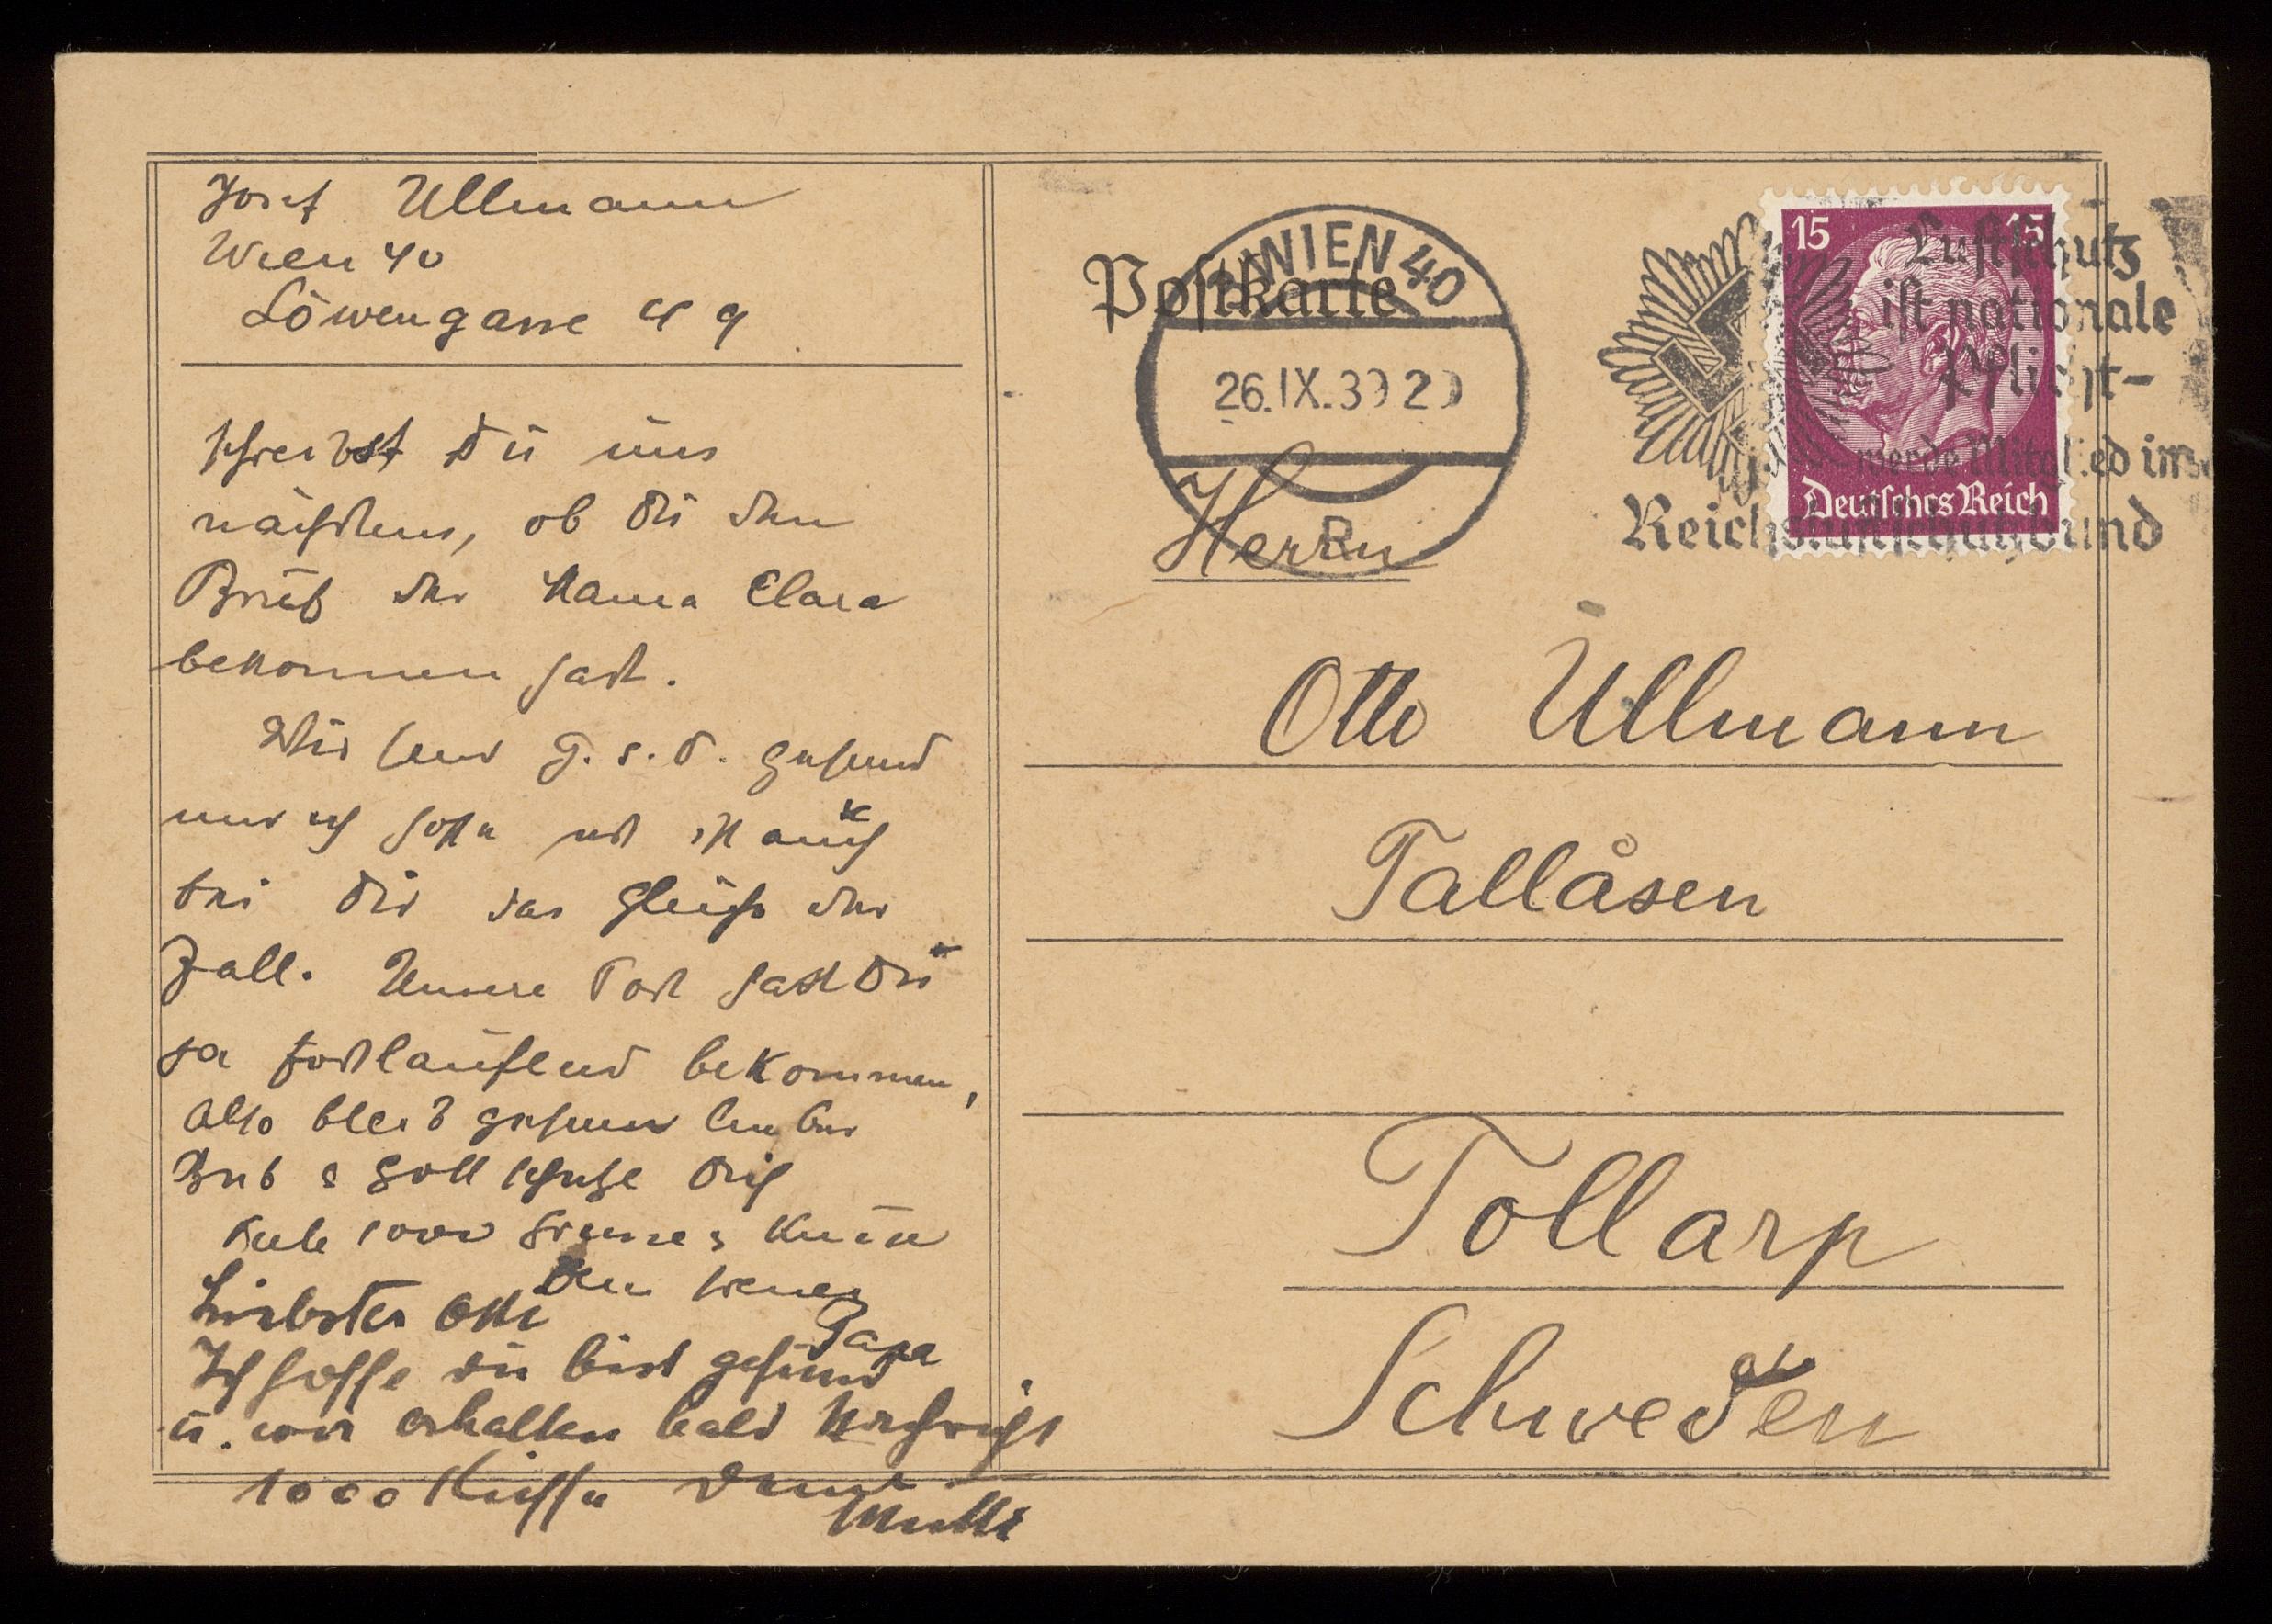 Josef Ullmann
Wien 40
Löwengasse 49
schreibst Du uns
nächstens, ob Du den
Brief der Mama Clara
bekommen hast.
Wir sind G. s. D. gesund
und ich hoffe und ist auch
bei Dir das gleiche der
Fall. Unsere Post hast Du
ja fortlaufend bekommen,
also bleib gesund lieber
Bub & Gott schütze Dich
Viele 1000 Grüsse & Küsse
Dein treuer
Papa
Liebster Otto
Ich hoffe du bist gesund
u. wir erhalten bald Nachricht
1000 Küsse Deine
Mutti
Postkarte
WIEN 40
26.IX.39 20
Luftschutz
ist nationale
Pflicht-
werde Mitglied im
Reichsluftschutzbund
15 15
Deutsches Reich
Herrn
Otto Ullmann
Tallåsen
Tollarp
Schweden